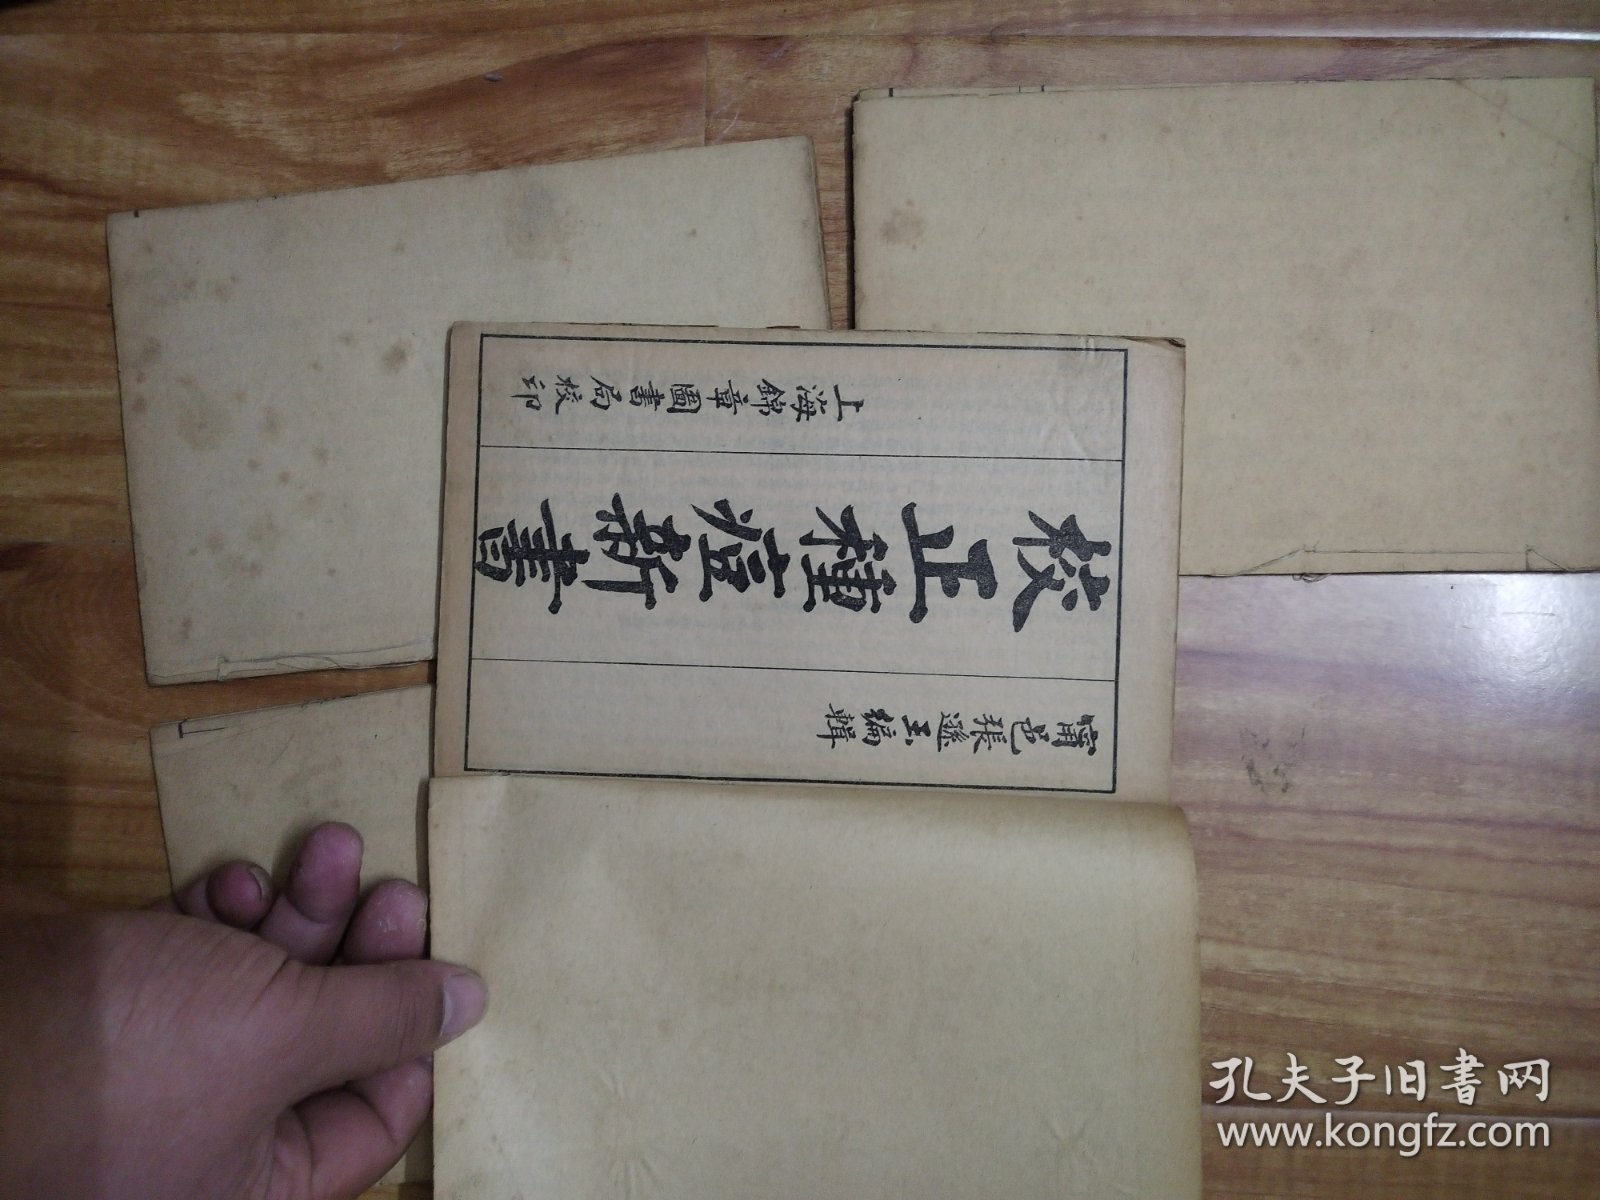 甯邑張遜玉編輯
校正種痘新書
上海錦章圖書局校印
孔夫子旧书网
www.kongfz.com